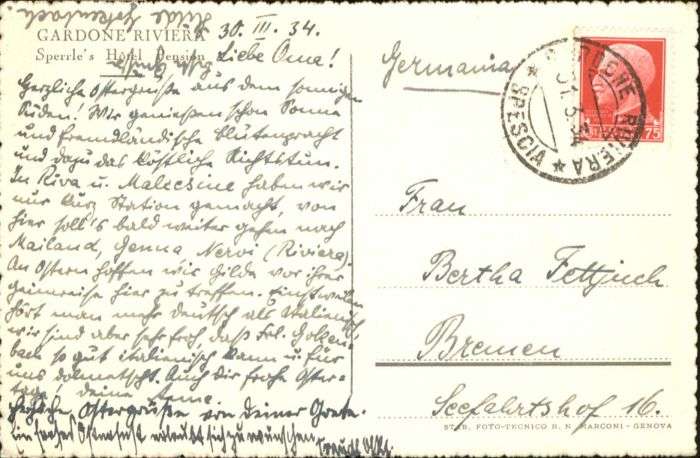 GARDONE RIVIERA
Sperrle's Hôtel Pension
30. III. 34.
Liebe Oma!
Herzliche Ostergrüsse aus dem sonnigen
Süden! Wir genießen schon Sonne
und fremdländische Blütenpracht
und dazu das köstliche Nichtstun.
In Riva u. Malcesine haben wir
nur kurz Station gemacht, von
hier soll's bald weiter gehen nach
Mailand, Genua Nervi (Riviera).
An Ostern hoffen wir Hilde vor ihrer
Heimreise hier zu treffen. Einstweilen
hört man mehr deutsch als italienisch,
wir sind aber sehr froh, daß Frl. Golken-
bach so gut italienisch kann u. für
uns dolmetscht. Auch dir frohe Oster-
tage deine
Herzliche Ostergrüße von deiner Grete.
Ein frohes Osterfest erlaubt sich zu wünschen
Germania
RIVIERA
SPESCIA
31.3.34
75
Frau
Bertha Fettjuch
Bremen
Seefahrtshof 16.
STAB. FOTO-TECNICO R. N. MARCONI - GENOVA